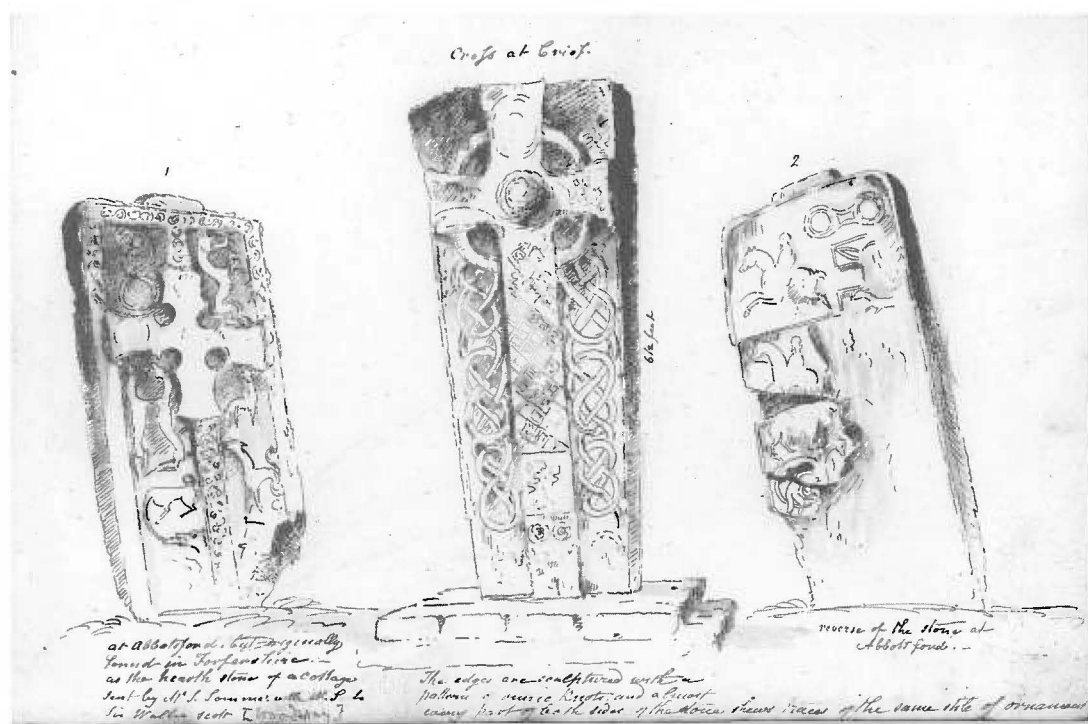 Cross at Crief.
1
2
6½ feet
at Abbotsford. but originally
found in Forfarshire. —
as the hearth stone of a cottage
sent by Mr. to
Sir Walter Scott
The edges are sculptured with a
pattern runic Knots, and almost
every part of both sides of the stone shews traces of the same stile of ornament
reverse of the stone at
Abbotsford. —